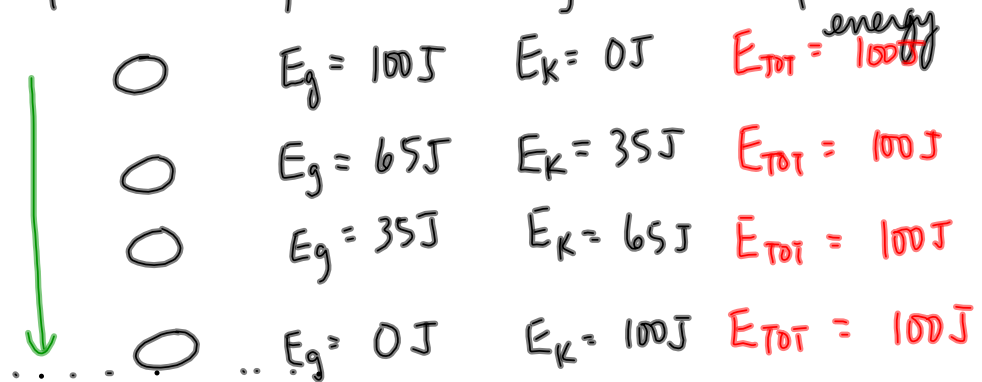 energy
Eg = 100J EK = 0J ETOT = 100J
Eg = 65J EK = 35J ETOT = 100J
Eg = 35J EK = 65J ETOT = 100J
Eg = 0J EK = 100J ETOT = 100J